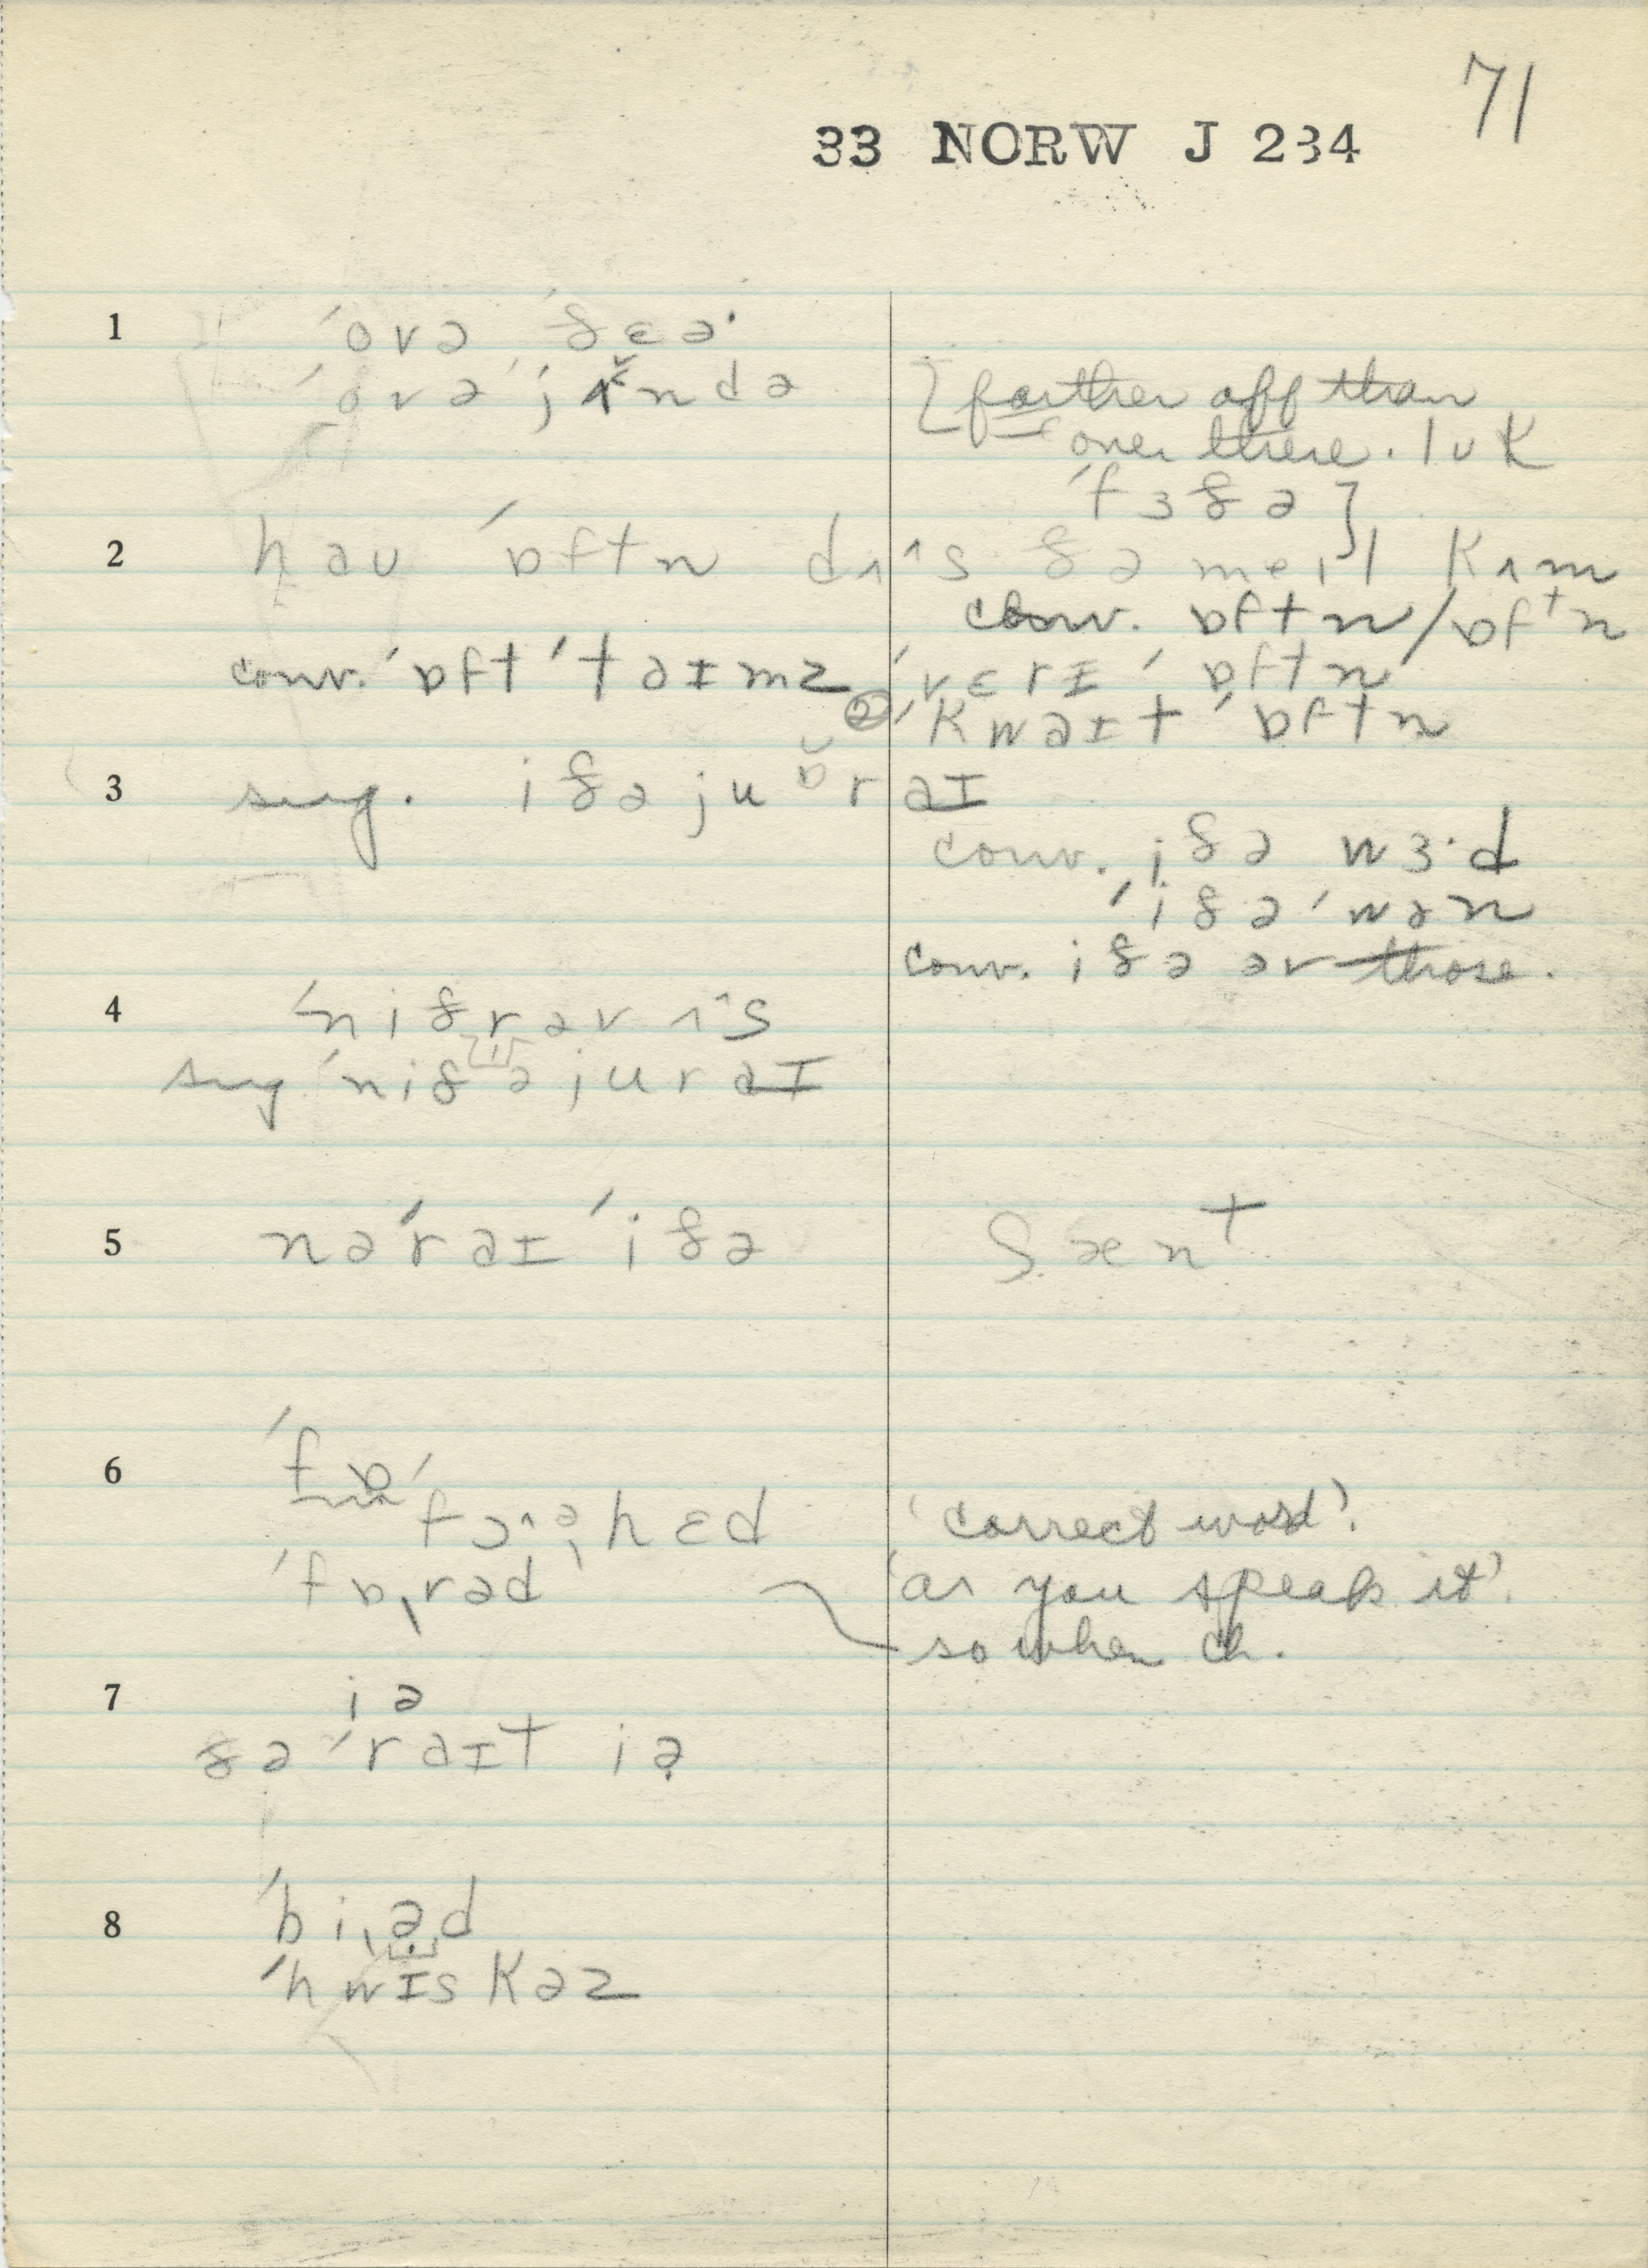 71
33 NORW J 234
1 ˈovə ˈðɛəˑ
ˈovə ˈjɪ̌ndə [farther off than
over there. lʊk
ˈfɜðə]
2 haʊ ˈɒftn dʌˆs ðə meɪl kʌm
conv. ɒftn/ɒfᵗn
conv. ˈɒft ˈtaɪmz ˈvɛrɪ ˈɒftn
② ˈkwaɪt ˈɒftn
3 sug. iðə ju ɒ̆r aɪ
conv. iðə wɜˑd
ˈiðə ˈwən
conv. iðə əv those.
4 ˈniðr əv ʌˆs
sug ˈniðə ju r aɪ
5 nəˈr aɪ ˈiðə ʃænt
6 ˈfɒ
ˈfɔˆəˌhɛd 'correct word'.
ˈfɒˌrəd 'as you speak it'.
so when ch.
7 iə
ðə ˈraɪt iə
8 ˈbiˌəd
ˈhwɪskəz